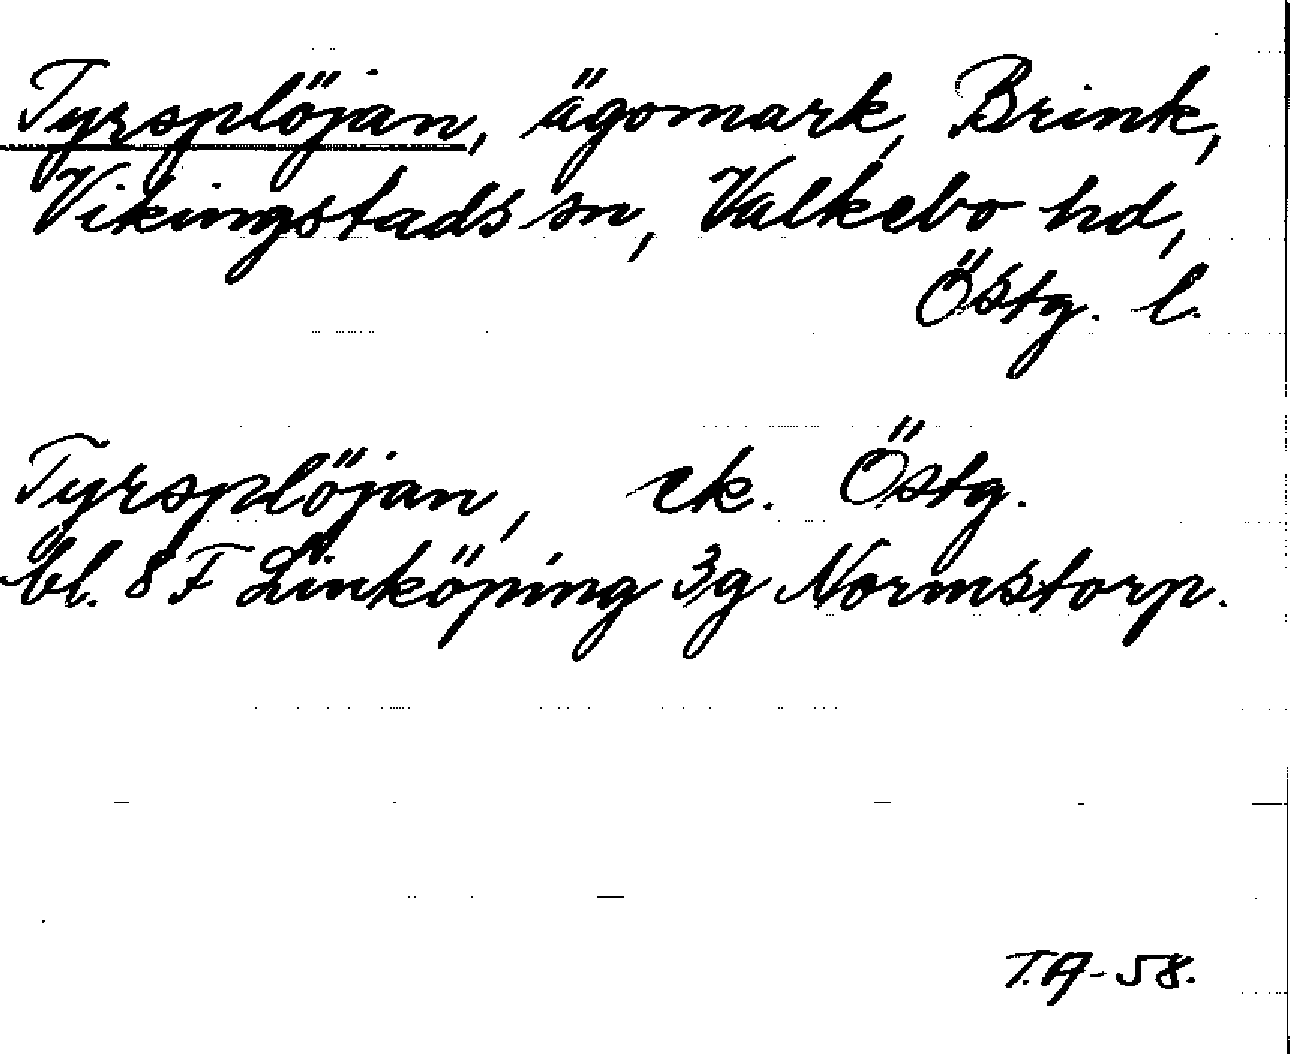 Tyrsplöjan, ägomark, Brink,
Vikingstads sn, Valkebo hd,
Östg. l.
Tyrsplöjan, ek. Östg.
bl. 8 F Linköping 3g Normstorp.
T.A-58.